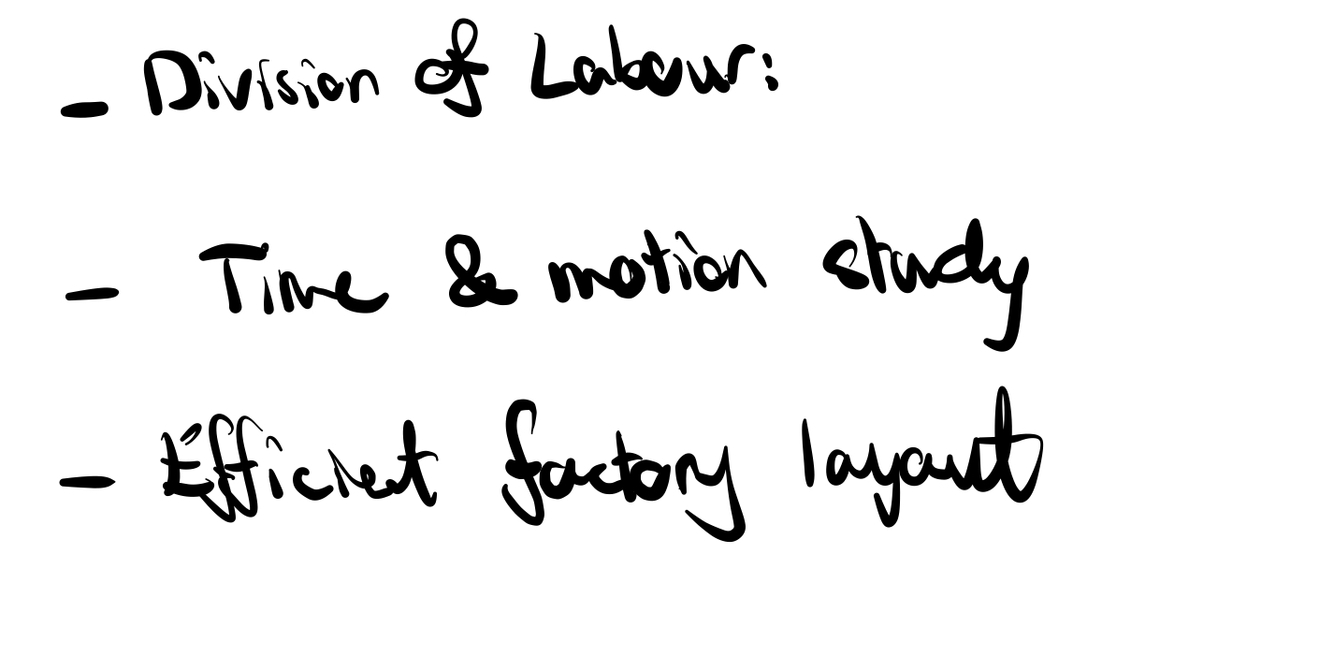 - Division of Labour:
- Time & motion study
- Efficient factory layout